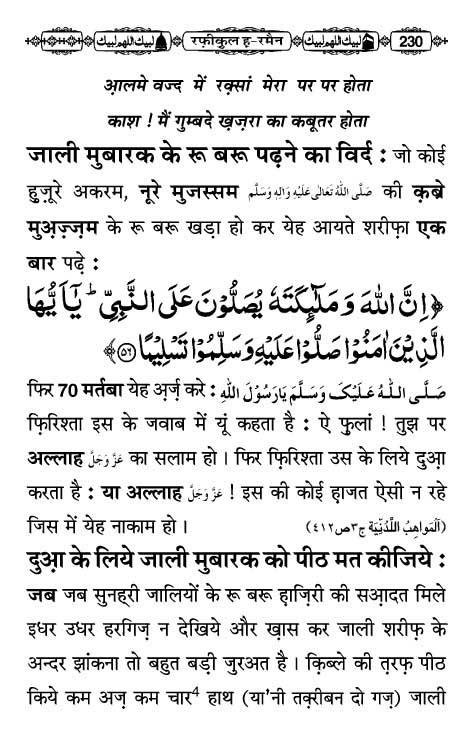 لبیك اللھم لبیك रफ़ीकुल ह-रमैन لبیك اللھم لبیك 230
आ़लमे वज्द में रक़्सां मेरा पर पर होता
काश ! मैं गुम्बदे ख़ज़रा का कबूतर होता
जाली मुबारक के रू बरू पढ़ने का विर्द : जो कोई
हुज़ूरे अकरम, नूरे मुजस्सम صَلَّی اللہُ تَعَالٰی عَلَیْہِ وَاٰلِہٖ وَسَلَّم की क़ब्रे
मुअ़ज़्ज़म के रू बरू खड़ा हो कर येह आयते शरीफ़ा एक
बार पढ़े :
﴿اِنَّ اللّٰهَ وَمَلٰٓىِٕكَتَهٗ یُصَلُّوْنَ عَلَى النَّبِیِّ ؕ یٰۤاَیُّهَا
الَّذِیْنَ اٰمَنُوْا صَلُّوْا عَلَیْهِ وَسَلِّمُوْا تَسْلِیْمًا ﴿۵۶﴾﴾
फिर 70 मर्तबा येह अ़र्ज़ करे : صَلَّی اللہُ عَلَیْکَ وَسَلَّمَ یَارَسُوْلَ اللہِ
फ़िरिश्ता इस के जवाब में यूं कहता है : ऐ फुलां ! तुझ पर
अल्लाह عَزَّوَجَلَّ का सलाम हो । फिर फ़िरिश्ता उस के लिये दुआ़
करता है : या अल्लाह عَزَّوَجَلَّ ! इस की कोई ह़ाजत ऐसी न रहे
जिस में येह नाकाम हो । (اَلْمَواہِبُ اللَّدُنِّیَة ج٣ص٤١٢)
दुआ़ के लिये जाली मुबारक को पीठ मत कीजिये :
जब जब सुनह्री जालियों के रू बरू ह़ाज़िरी की सआ़दत मिले
इधर उधर हरगिज़ न देखिये और ख़ास कर जाली शरीफ़ के
अन्दर झांकना तो बहुत बड़ी जुरअत है । क़िब्ले की त़रफ़ पीठ
किये कम अज़ कम चार⁴ हाथ (या'नी तक़्रीबन दो गज़) जाली